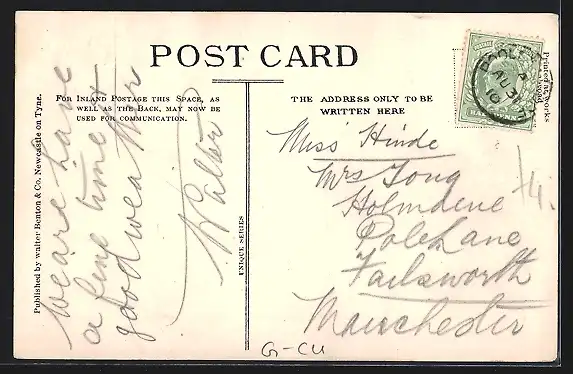 POST CARD
FOR INLAND POSTAGE THIS SPACE, AS
WELL AS THE BACK, MAY NOW BE
USED FOR COMMUNICATION.
THE ADDRESS ONLY TO BE
WRITTEN HERE
Published by walter Benton & Co. Newcastle on Tyne.
UNIQUE SERIES
we are have
a fine time
good weather
Walter
Miss Hinde
Mrs Tong
Holmdene
Pole Lane
Failsworth
Manchester
HALFPENNY
AU 31
10
Printed at works
G-CU